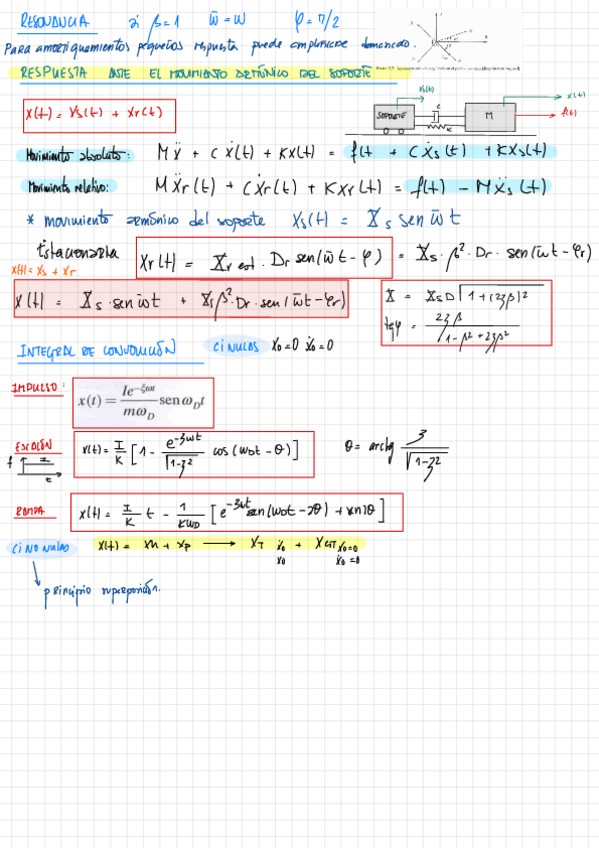 RESONANCIA si β=1 ω̄=ω φ=π/2
Para amortiguamientos pequeños respuesta puede amplificarse demasiado.
RESPUESTA ANTE EL MOVIMIENTO ARMÓNICO DEL SOPORTE
x(t) = xs(t) + xr(t)
xs(t) x(t)
SOPORTE C K M f(t)
Movimiento absoluto: Mẍ + cẋ(t) + Kx(t) = f(t + Cẋs(t) + KXs(t)
Movimiento relativo: Mẍr(t) + Cẋr(t) + KXr(t) = f(t) - Mẍs(t)
* movimiento armónico del soporte Xs(t) = Xs sen ω̄t
Estacionaria Xr(t) = Xr est · Dr sen(ω̄t - φ) = Xs · β² · Dr · sen(ω̄t - φr)
X(t) = Xs + Xr
X(t) = Xs · sen ω̄t + Xs β² · Dr · sen(ω̄t - φr)
X = XsD√1+(2ξβ)²
tgφ = 2ξβ / 1-β²+2ξβ²
INTEGRAL DE CONVOLUCIÓN CI NULAS x0=0 ẋ0=0
IMPULSO: x(t) = Ie^-ξωt / mωD sen ωD t
ESCALÓN x(t) = I/K [1 - e^-ξωt / √1-ξ² cos(ωDt - θ)] θ = arctg ξ / √1-ξ²
f t
RAMPA x(t) = I/K t - 1/KωD [e^-ξωt sen(ωDt - 2θ) + sen2θ]
CI NO NULAS x(t) = xh + xp → XT ẋ0 x0 + XEST x0=0 ẋ0=0
principio superposición.